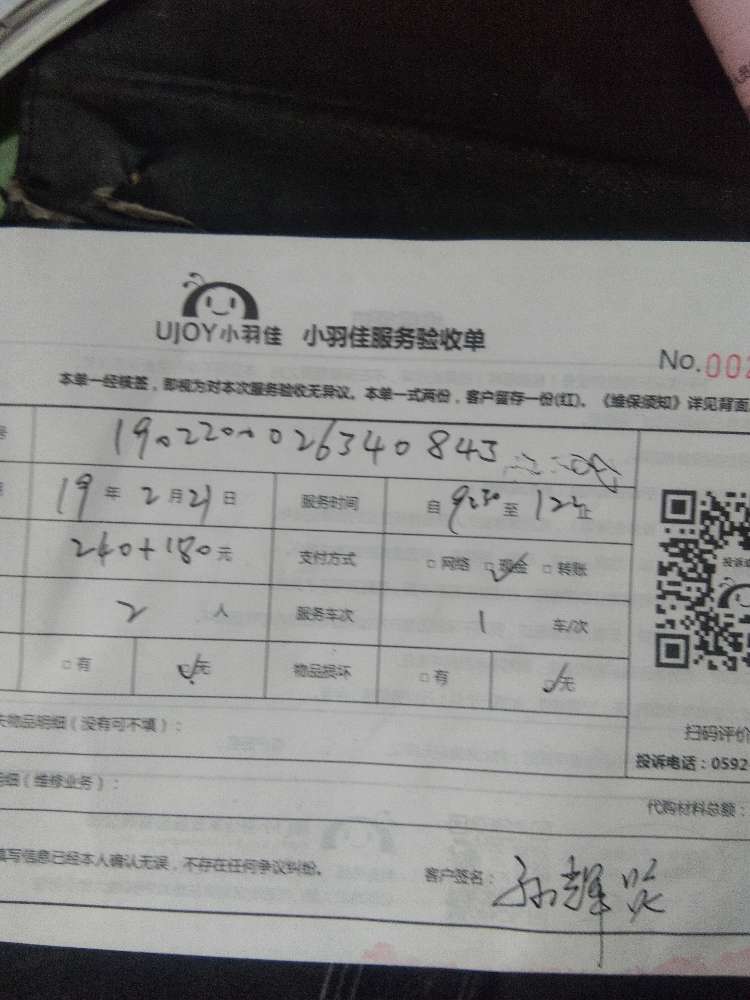 UJOY小羽佳 小羽佳服务验收单
No.002
本单一经核签，即视为对本次服务验收无异议。本单一式两份，客户留存一份(红)。《维保须知》详见背面
号 190220002634 0843
19 年 2 月 21 日 服务时间 自 9:30 至 12: 止
投诉
240+180 元 支付方式 □网络 ☑现金 □转账
2 人 服务车次 1 车/次
□有 ☑无 物品损坏 □有 ☑无
失物品明细（没有可不填）：
扫码评价
投诉电话：0592
明细（维修业务）：
代购材料总额：
填写信息已经本人确认无误，不存在任何争议纠纷。 客户签名：孙辉